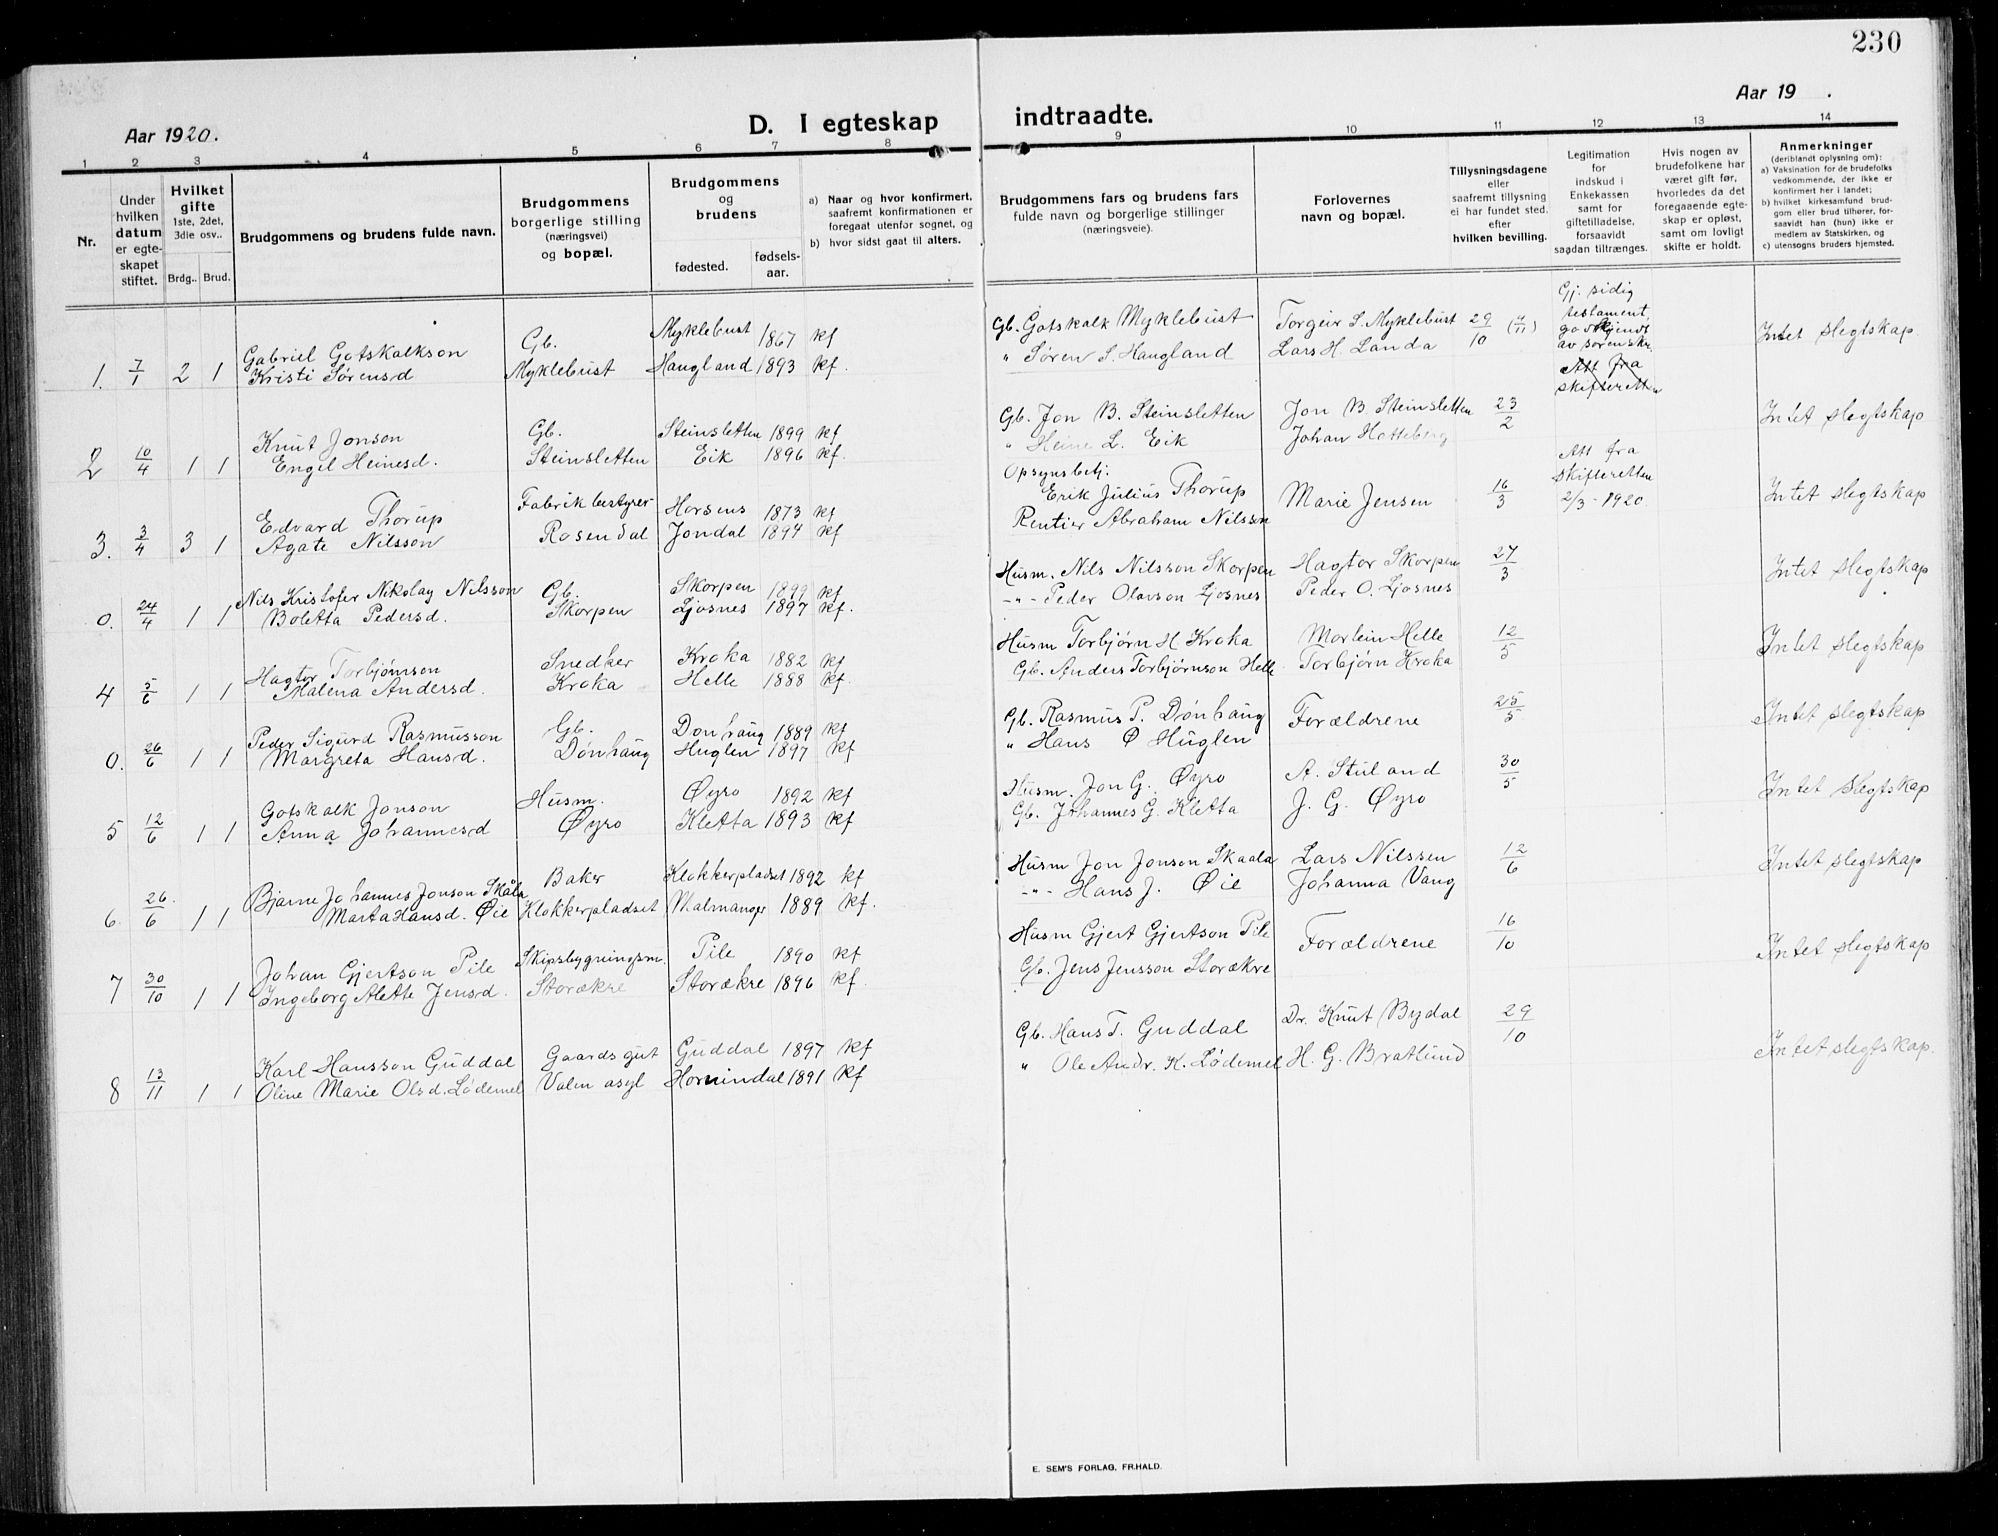 230
Aar 1920.
D. I egteskap indtraadte.
Aar 19 .
1 2 3 4 5 6 7 8 9 10 11 12 13 14
Nr.
Under hvilken datum er egteskapet stiftet.
Hvilket gifte 1ste, 2det, 3die osv..
Brdg.. Brud.
Brudgommens og brudens fulde navn.
Brudgommens borgerlige stilling (næringsvei) og bopæl.
Brudgommens og brudens
fødested. fødselsaar.
a) Naar og hvor konfirmert, saafremt konfirmationen er foregaat utenfor sognet, og
b) hvor sidst gaat til alters.
Brudgommens fars og brudens fars fulde navn og borgerlige stillinger (næringsveie).
Forlovernes navn og bopæl.
Tillysningsdagene eller saafremt tillysning ei har fundet sted. efter hvilken bevilling.
Legitimation for indskud i Enkekassen samt for giftetilladelse, forsaavidt saadan tiltrænges.
Hvis nogen av brudefolkene har været gift før, hvorledes da det foregaaende egteskap er opløst, samt om lovligt skifte er holdt.
Anmerkninger (deriblandt oplysning om):
a) Vaksination for de brudefolks vedkommende, der ikke er konfirmert her i landet;
b) hvilket kirkesamfund brudgom eller brud tilhører, forsaavidt han (hun) ikke er medlem av Statskirken, og
c) utensogns bruders hjemsted.
1. 7/1 2 1 Gabriel Gotskalkson Gb. Myklebust 1867 kf Gb. Gotskalk Myklebust Torgeir S. Myklebust 29/10 (4/11) Gj. sidig testament, godkjendt av sorenskr. Intet slegtskap.
Kristi Sørensd Myklebust Haugland 1893 kf. " Søren S. Haugland Lars H. Landa Att fra skifteretten
2 10/4 1 1 Knut Jonson Gb. Steinsletten 1899 kf Gb. Jon B. Steinsletten Jon B. Steinsletten 23/2 Intet slegtskap
Engel Heinesd. Steinsletten Eik 1896 kf. " Heine L. Eik Johan Hatteberg
3. 3/4 3 1 Edvard Thorup Fabrikbestyrer Horsens 1873 kf Opsynsbetj. Erik Julius Thorup Marie Jensen 16/3 Att fra skifteretten 2/3-1920. Intet slegtskap
Agate Nilsson Rosendal Jondal 1894 kf Rentier Abraham Nilsson
0. 24/4 1 1 Nils Kristofer Nikolay Nilsson Gb. Skorpen 1899 kf Husm. Nils Nilsson Skorpen Hagtor Skorpen 27/3 Intet slegtskap
Boletta Pedersd. Skorpen Ljosnes 1897 kf. -"- Peder Olavson Ljosnes Peder O. Ljosnes
4 5/6 1 1 Hagtor Torbjørnson Snedker Kroka 1882 kf Husm Torbjørn H Kroka Mortein Helle 12/5 Intet slegtskap
Malena Andersd. Kroka Helle 1888 kf. Gb. Anders Torbjørnson Helle Torbjørn Kroka
0. 26/6 1 1 Peder Sigurd Rasmusson Gb. Dønhaug 1889 kf Gb. Rasmus P. Dønhaug Forældrene 25/5 Intet slegtskap
Margreta Hansd. Dønhaug Huglen 1897 kf " Hans Ø Huglen
5 12/6 1 1 Gotskalk Jonson Husm. Øyro 1892 kf Husm. Jon G. Øyro A. Stuland 30/5 Intet slegtskap
Anna Johannesd Øyro Kletta 1893 kf Gb. Johannes G. Kletta J. G. Øyro
6. 26/6 1 1 Bjarne Johannes Jonson Skåla Baker Klokkerpladset 1892 kf Husm Jon Jonson Skaala Lars Nilssen 12/6 Intet slegtskap
Marta Hansd. Øie Klokkerpladset Malmanger 1889 kf. -"- Hans J. Øie Johanna Vang
7 30/10 1 1 Johan Gjertson Pile Skipsbygningsm. Pile 1890 kf Husm Gjert Gjertson Pile Forældrene 16/10 Intet slegtskap
Ingeborg Alette Jensd. Storækre Storækre 1896 kf. Gb. Jens Jensson Storækre
8 13/11 1 1 Karl Hansson Guddal Gaardsgut Guddal 1897 kf Gb. Hans T. Guddal Dr. Knut Bydal 29/10 Intet slegtskap.
Oline Marie Olsd. Lødemel Valen asyl Hornindal 1891 kf " Ole Andr. K. Lødemel H. G. Bratlund
E. SEM'S FORLAG, FR.HALD.